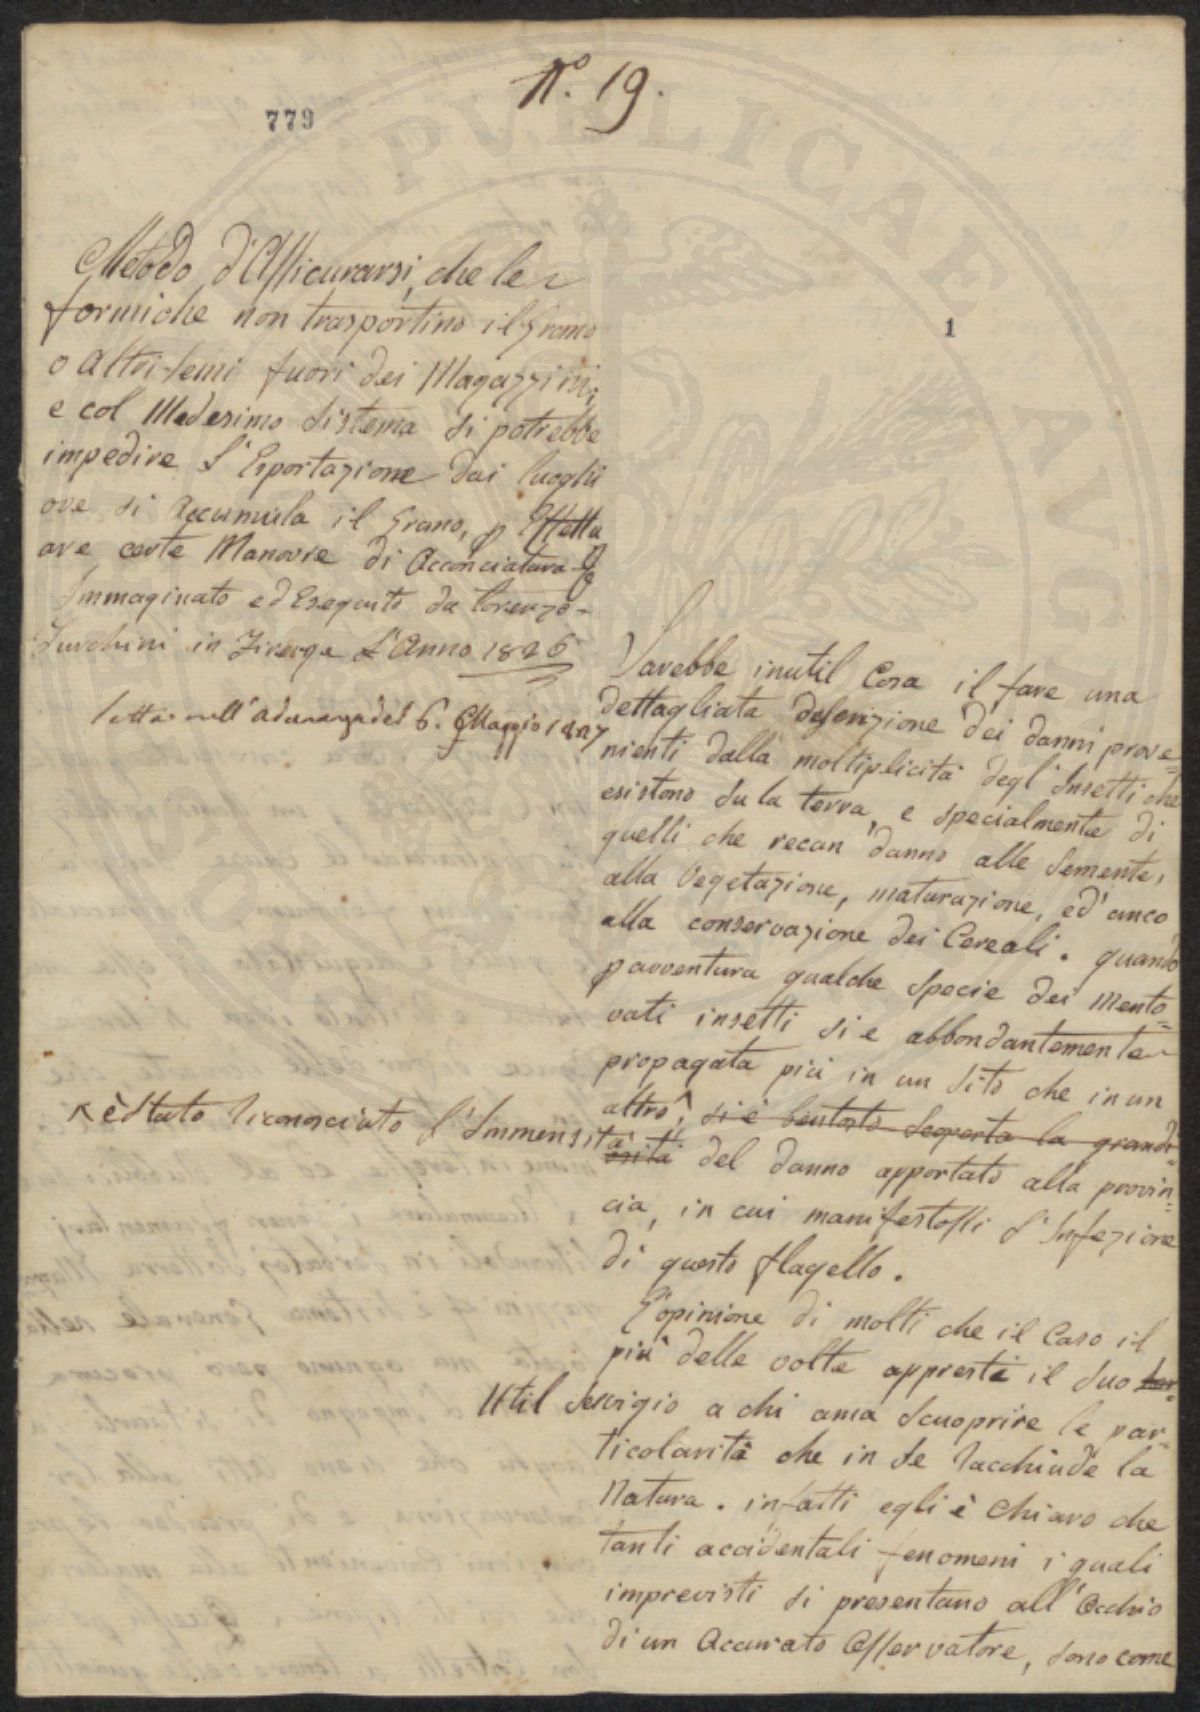 N.º 19.
779
Metodo d'Assicurarsi, che le
formiche non trasportino il Grano
o altri semi fuori dei Magazzini;
e col Medesimo Sistema si potrebbe
impedire l'Esportazione dai luoghi
ove si accumula il Grano, p Effettu
are certe Manovre di Acconciatura &c
Immaginato ed Eseguito da Lorenzo
Turchini in Firenze L'Anno 1826
Letta nell'adunanza del 6. Maggio 1827
1
Sarebbe inutil Cosa il fare una
dettagliata descrizione dei danni prove=
nienti dalla moltiplicità degl'Insetti che
esistono su la terra, e specialmente di
quelli che recan danno alle Semente,
alla Vegetazione, maturazione, ed'anco
alla conservazione dei Cereali. quando
p avventura qualche specie dei Mento=
vati insetti si e abbondantemente
propagata più in un Sito che in un
altro^, si è bentosto Scoperta la grandi=
^ è Stato riconosciuto l'Immensità
osità del danno apportato alla provin=
cia, in cui manifestossi l'Infezione
di questo flagello.
L'opinione di molti che il Caso il
più delle volte appresti il suo ser=
Util servigio a chi ama scuoprire le par=
ticolarità che in se racchiude la
Natura. infatti egli è chiaro che
tanti accidentali fenomeni i quali
imprevisti si presentano all'Occhio
di un Accurato Osservatore, sono come